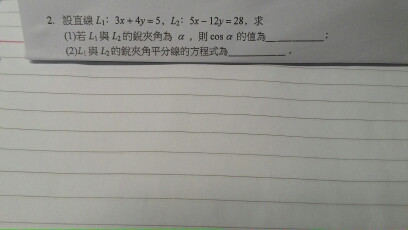 2. 設直線 L₁：3x + 4y = 5，L₂：5x − 12y = 28，求
(1)若 L₁ 與 L₂ 的銳夾角為 α，則 cos α 的值為__________；
(2)L₁ 與 L₂ 的銳夾角平分線的方程式為__________．